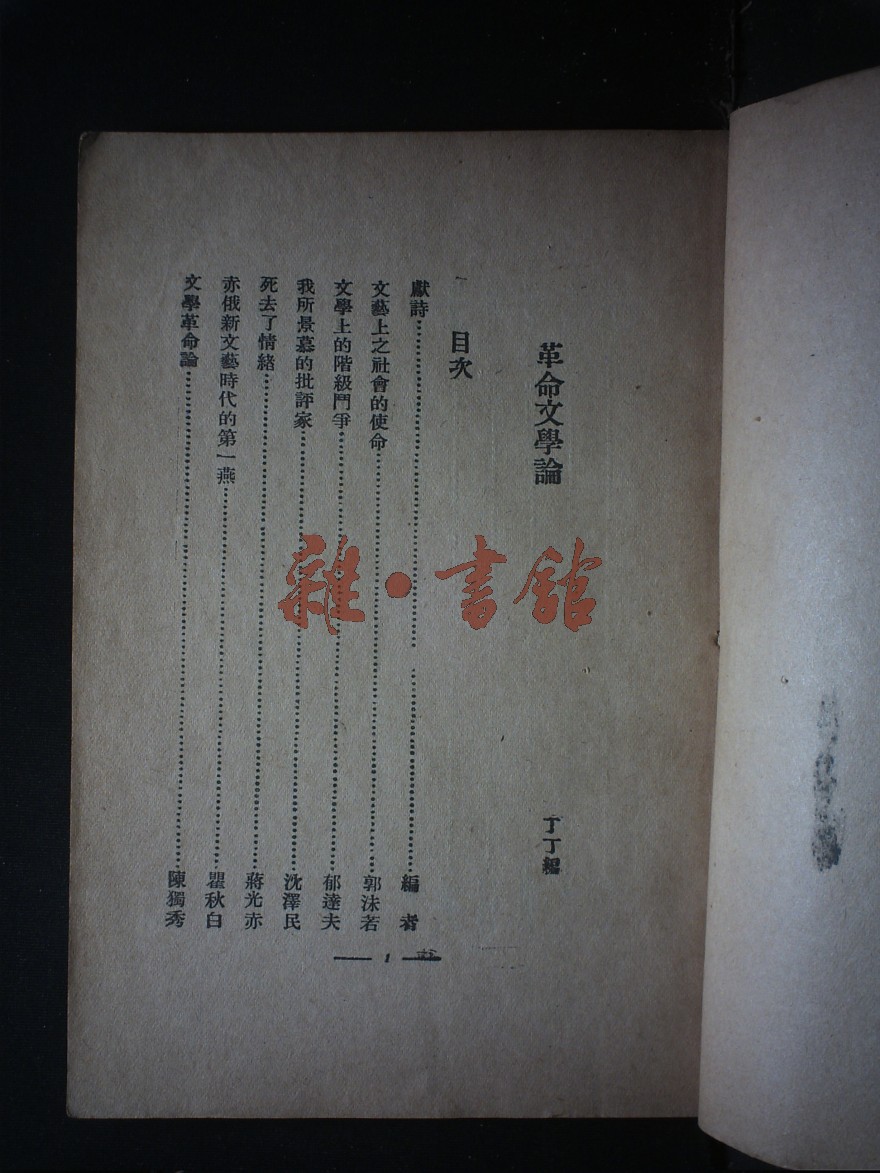 革命文學論
丁丁編
目次
獻詩……編者
文藝上之社會的使命……郭沫若
文學上的階級鬥爭……郁達夫
我所景慕的批評家……沈澤民
死去了情緒……蔣光赤
赤俄新文藝時代的第一燕……瞿秋白
文學革命論……陳獨秀
1
雜·書館